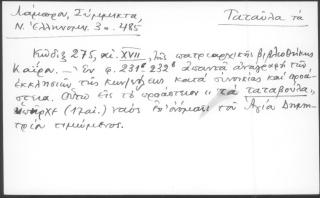 Λάμπρου, Σύμμικτα, Ταταῦλα τά
Ν. Ἑλληνομν. 3ος 485
Κῶδιξ 275, αἰ. XVII, τῆς πατριαρχικῆς βιβλιοθήκης
Καΐρου. — Ἐν φ. 231β 232β ἀπαντᾷ ἀναγραφὴ τῶν
ἐκκλησιῶν τῆς Κων/πόλεως κατὰ συνοικίας καὶ προά-
στεια. Οὕτω εἰς τὸ προάστειον "τὰ ταταβοῦλα"
ὑπῆρχε (17 αἰ.) ναὸς ἐπ' ὀνόματι τοῦ Ἁγίου Δημη-
τρίου τιμώμενος.